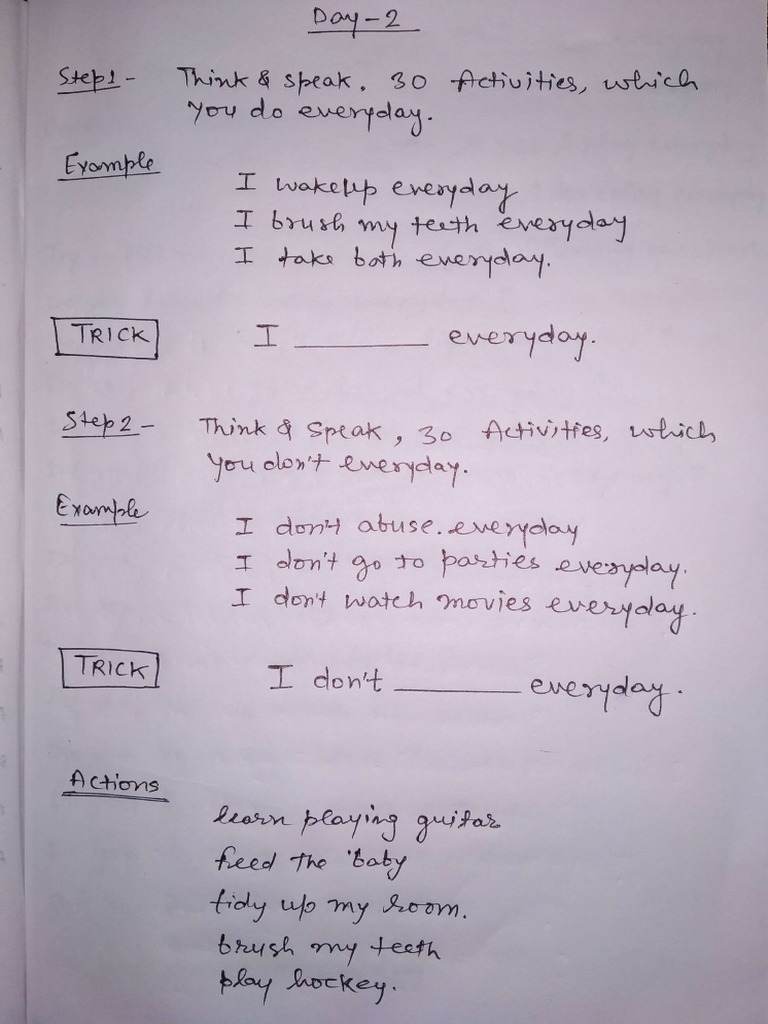 Day-2
Step1- Think & speak, 30 Activities, which
you do everyday.
Example
I wakeup everyday
I brush my teeth everyday
I take bath everyday.
TRICK I ________ everyday.
Step2- Think & speak, 30 Activities, which
you don't everyday.
Example
I don't abuse.everyday
I don't go to parties everyday.
I don't watch movies everyday.
TRICK I don't ________ everyday.
Actions
learn playing guitar
feed the baby
tidy up my room.
brush my teeth
play hockey.